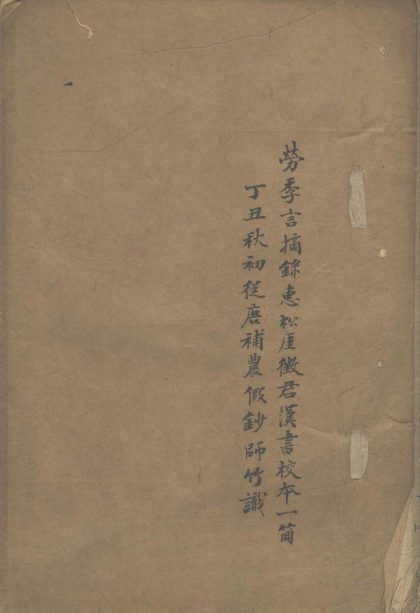 勞季言摘錄惠松厓徵君漢書校本一箇
丁丑秋初從唐補農假鈔師竹識